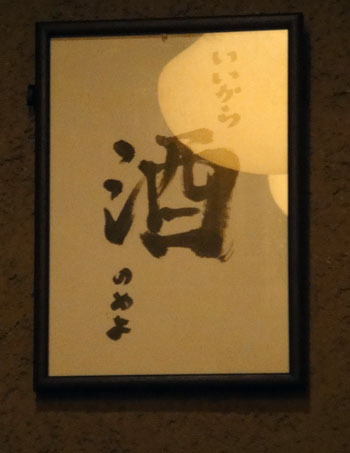 いいから
酒
のめよ